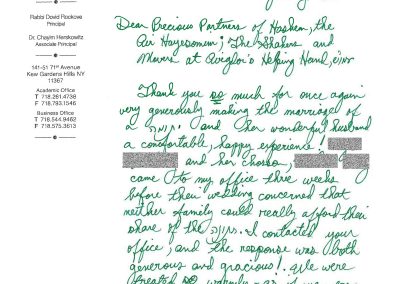 Rabbi Dovid Plockове
Principal
Dr. Chayim Herskowitz
Associate Principal
141-51 71st Avenue
Kew Gardens Hills NY
11367
Academic Office
T 718.261.4738
F 718.793.1546
Business Office
T 718.544.9462
F 718.575.3613
Dear Precious Partners of Hashem, the
Air Hayesomim; The Shakers and
Movers at Avigdor's Helping Hand,
Thank you so much for once again
very generously making the marriage of
a and her wonderful husband
a comfortable, happy experience!
and her chosson,
came to my office three weeks
before their wedding concerned that
neither family could really afford their
share of the . I contacted your
office, and the response was both
generous and gracious! We were
treated so warmly